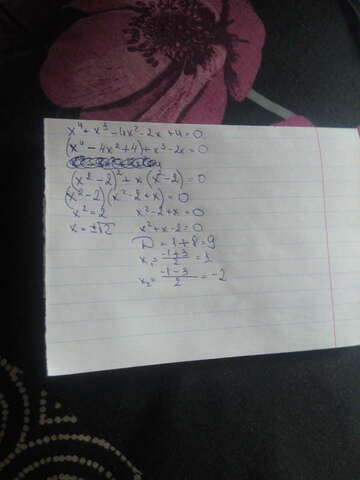 x⁴+x³-4x²-2x+4=0
(x⁴-4x²+4)+x³-2x=0
(x²-2)²+x(x²-2)=0
(x²-2)(x²-2+x)=0
x²=2 x²-2+x=0
x=±√2 x²+x-2=0
D=1+8=9
x₁=(-1+3)/2=1
x₂=(-1-3)/2=-2